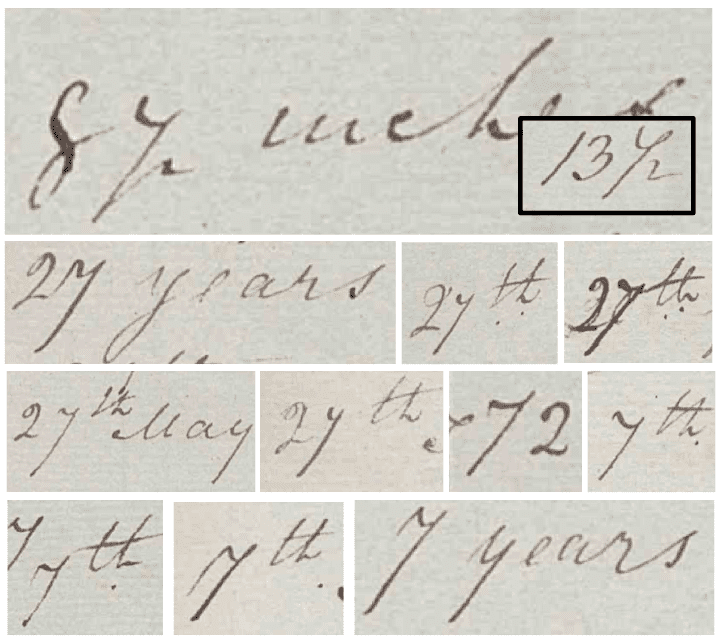 8½ inches
13½
27 years 27th 27th
27th May 27th 72 7th
7th 7th 7 years